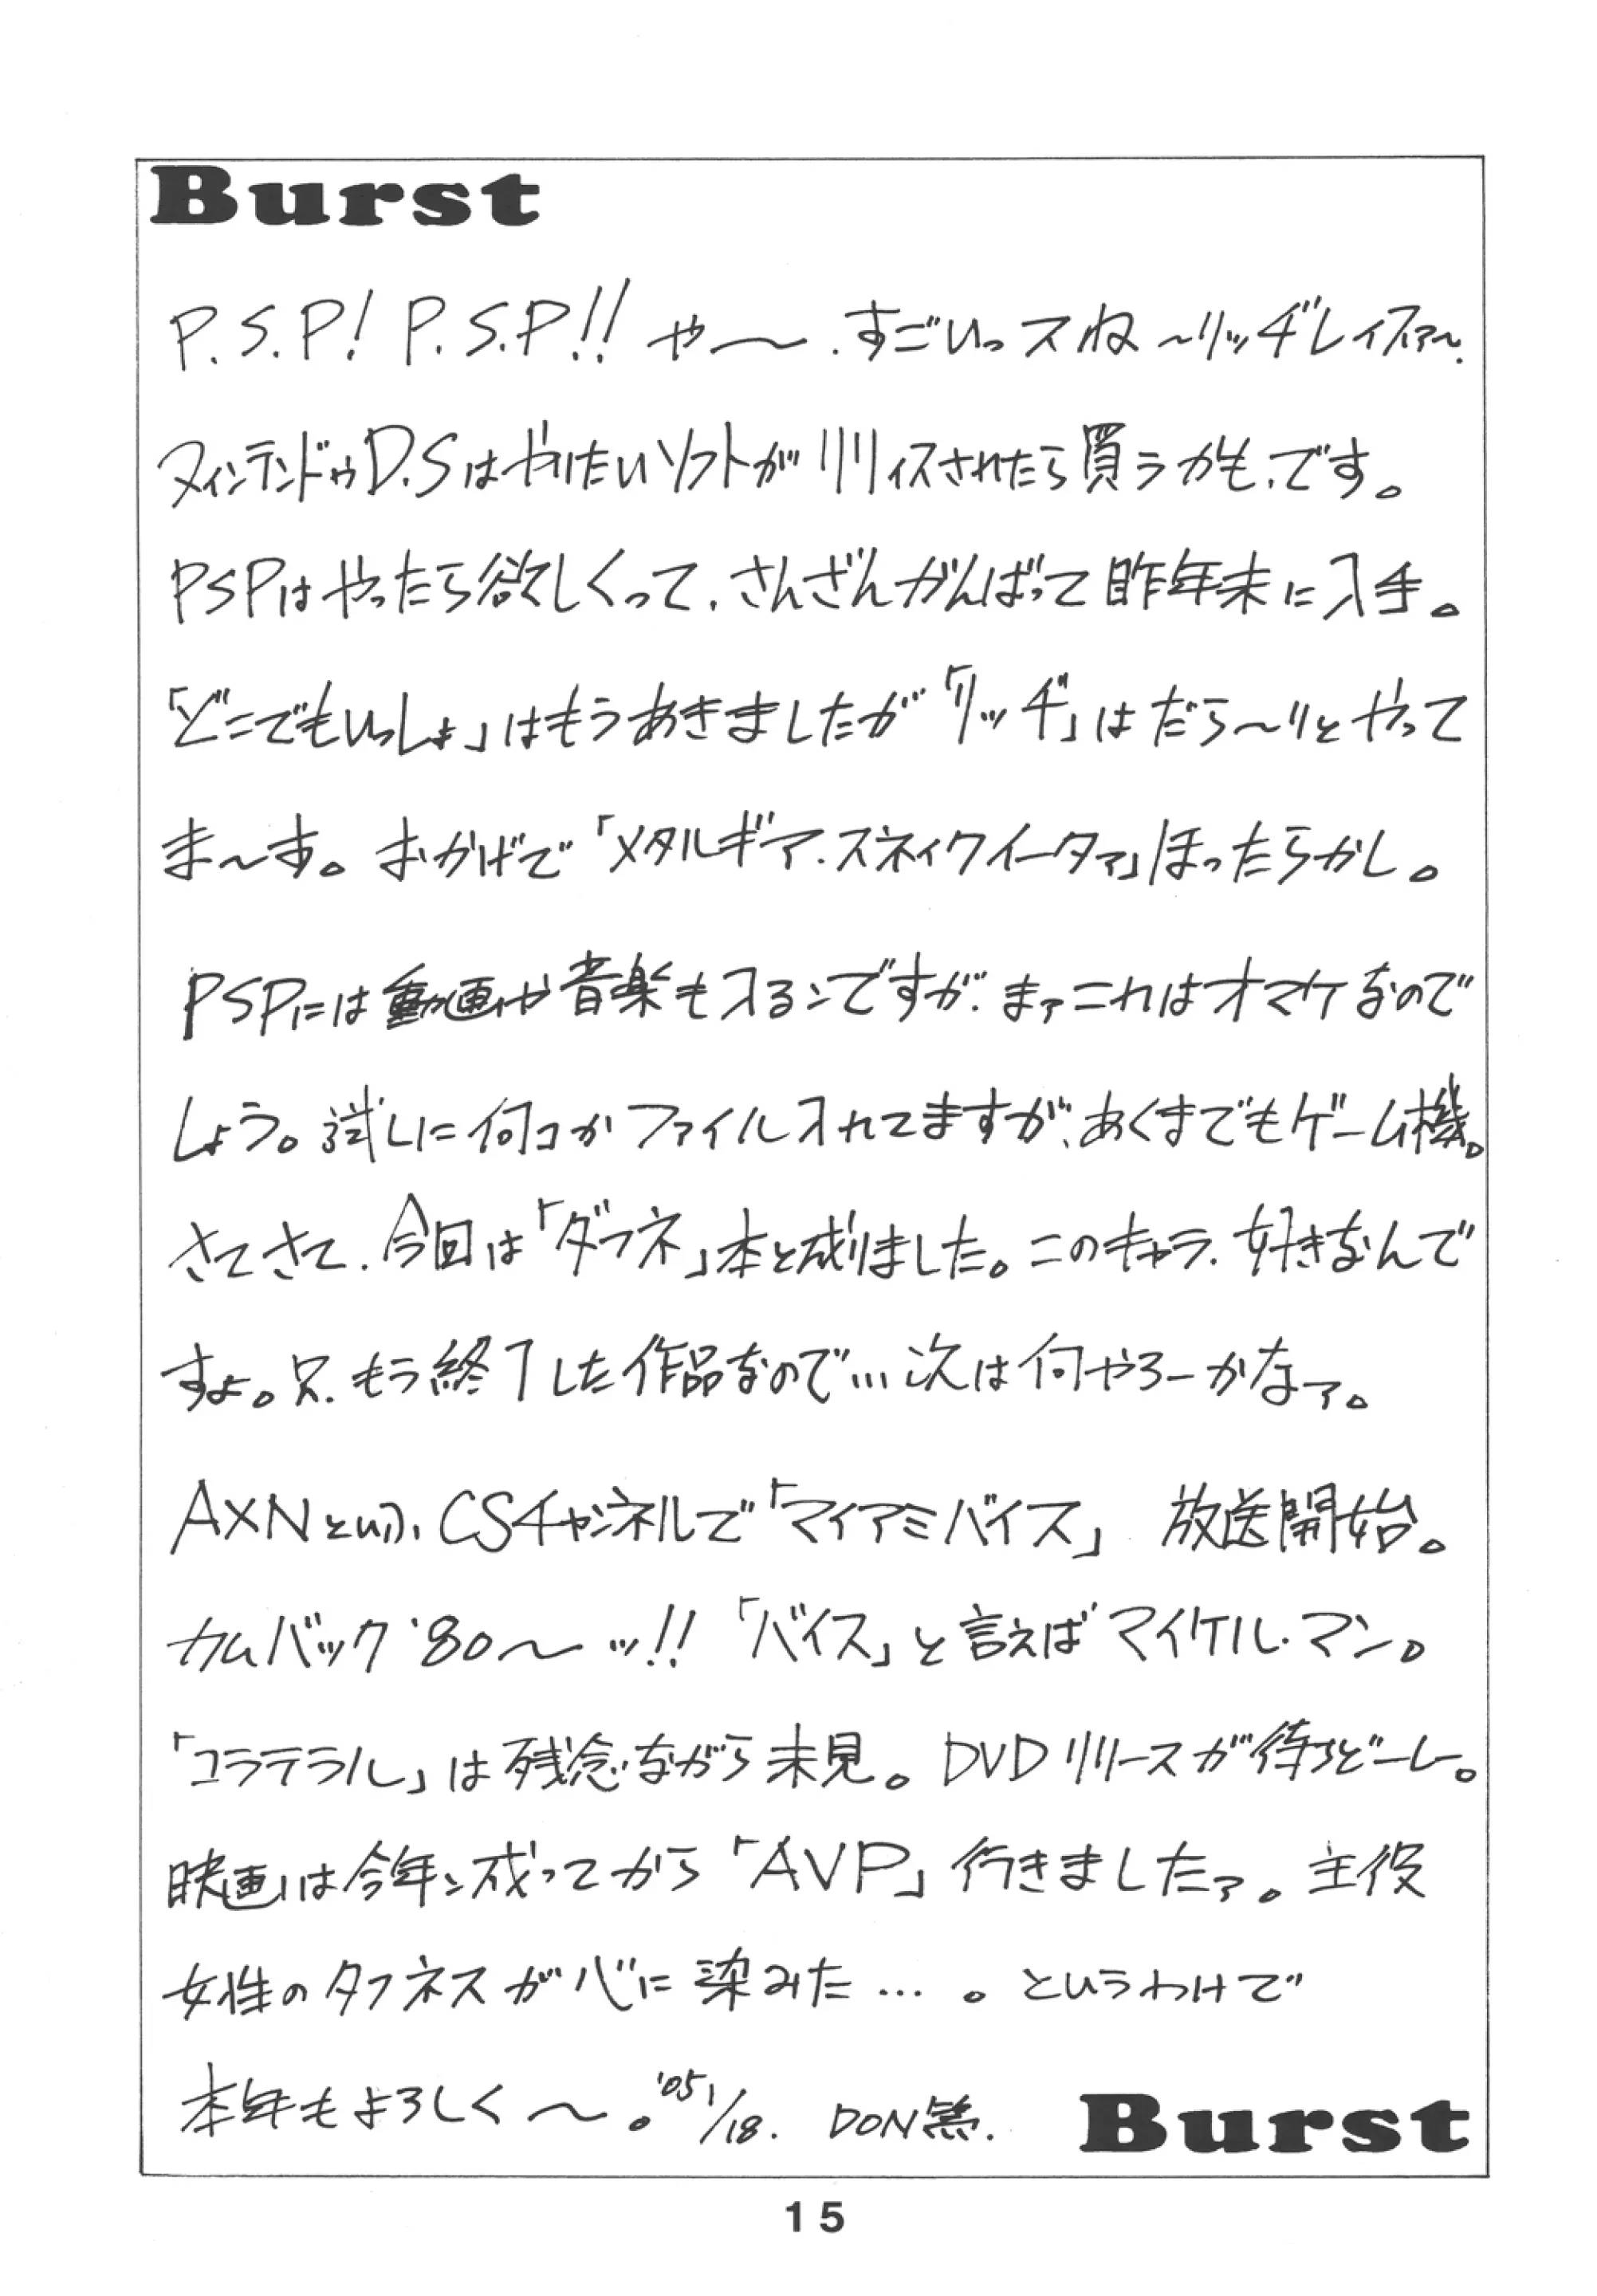 Burst
P.S.P! P.S.P!! や〜、すごいっスね〜リッヂレイスァ〜、
ヌィンテンドゥD.Sはやりたいソフトがリリィスされたら買うかも、です。
PSPはやったら欲しくって、さんざんがんばって昨年末に入手。
「どこでもいっしょ」はもうあきましたが「リッヂ」はだら〜りとやって
ま〜す。おかげで「メタルギア・スネィクイータァ」ほったらかし。
PSPには動画や音楽も入るンですが、まァこれはオマケなので
しょう。試しに何コかファイル入れてますが、あくまでもゲーム機。
さてさて、今回は「ダフネ」本と成りました。このキャラ、好きなんで
すよ。只、もう終了した作品なので…次は何やろーかなァ。
AXNといふCSチャンネルで「マイアミバイス」 放送開始。
カムバック'80〜ッ!! 「バイス」と言えばマイケル・マン。
「コラテラル」は残念ながら未見。DVDリリースが待ちどーしー。
映画は今年ン成ってから「AVP」行きましたァ。主役
女性のタフネスが心に染みた…。というわけで
本年もよろしく〜。'05 1/18. DON繁.
Burst
15